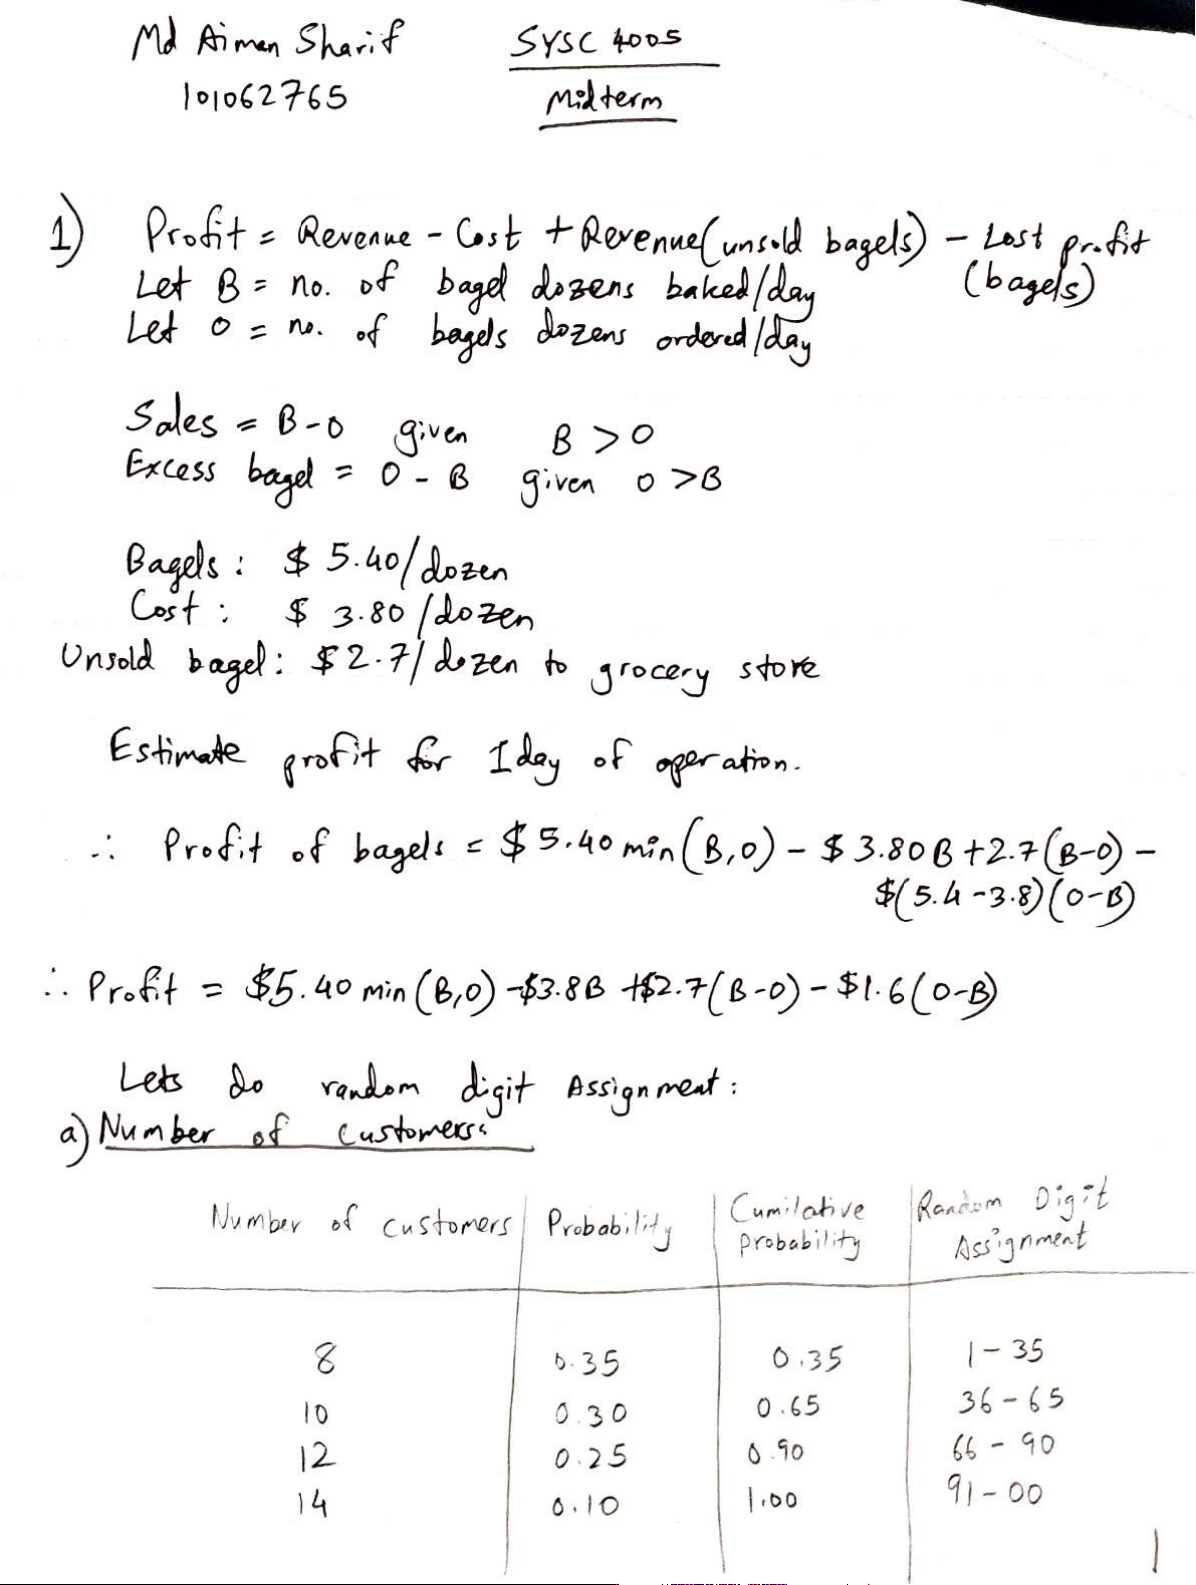 Md Aiman Sharif SYSC 4005
101062765 Midterm
1) Profit = Revenue - Cost + Revenue(unsold bagels) - Lost profit (bagels)
Let B = no. of bagel dozens baked/day
Let O = no. of bagels dozens ordered/day
Sales = B-O given B > O
Excess bagel = O - B given O > B
Bagels : $ 5.40/dozen
Cost : $ 3.80 /dozen
Unsold bagel: $2.7/dozen to grocery store
Estimate profit for 1 day of operation.
∴ Profit of bagels = $5.40 min(B,O) - $3.80B + 2.7(B-O) -
$(5.4-3.8)(O-B)
∴ Profit = $5.40 min(B,O) -$3.8B +$2.7(B-O) - $1.6(O-B)
Lets do random digit Assignment:
a) Number of Customers:
Number of customers Probability Cumilative probability Random Digit Assignment
8 0.35 0.35 1-35
10 0.30 0.65 36-65
12 0.25 0.90 66-90
14 0.10 1.00 91-00
1